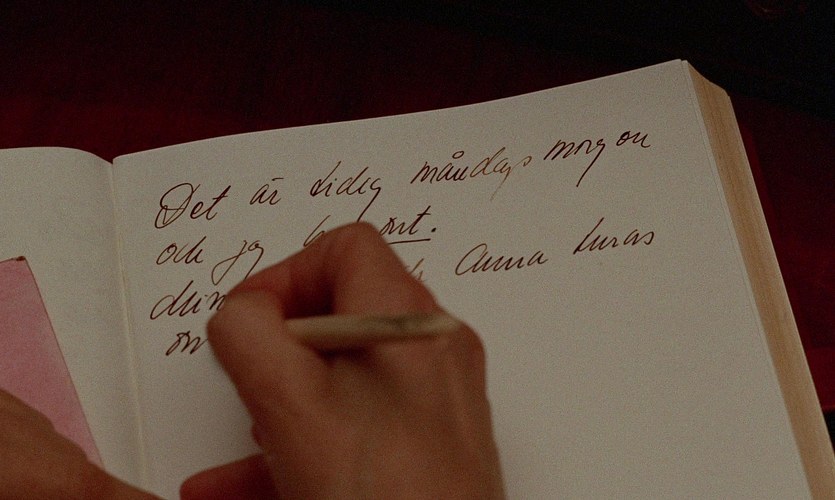 Det är tidig måndags morgon
och jag ont.
Anna turas
om